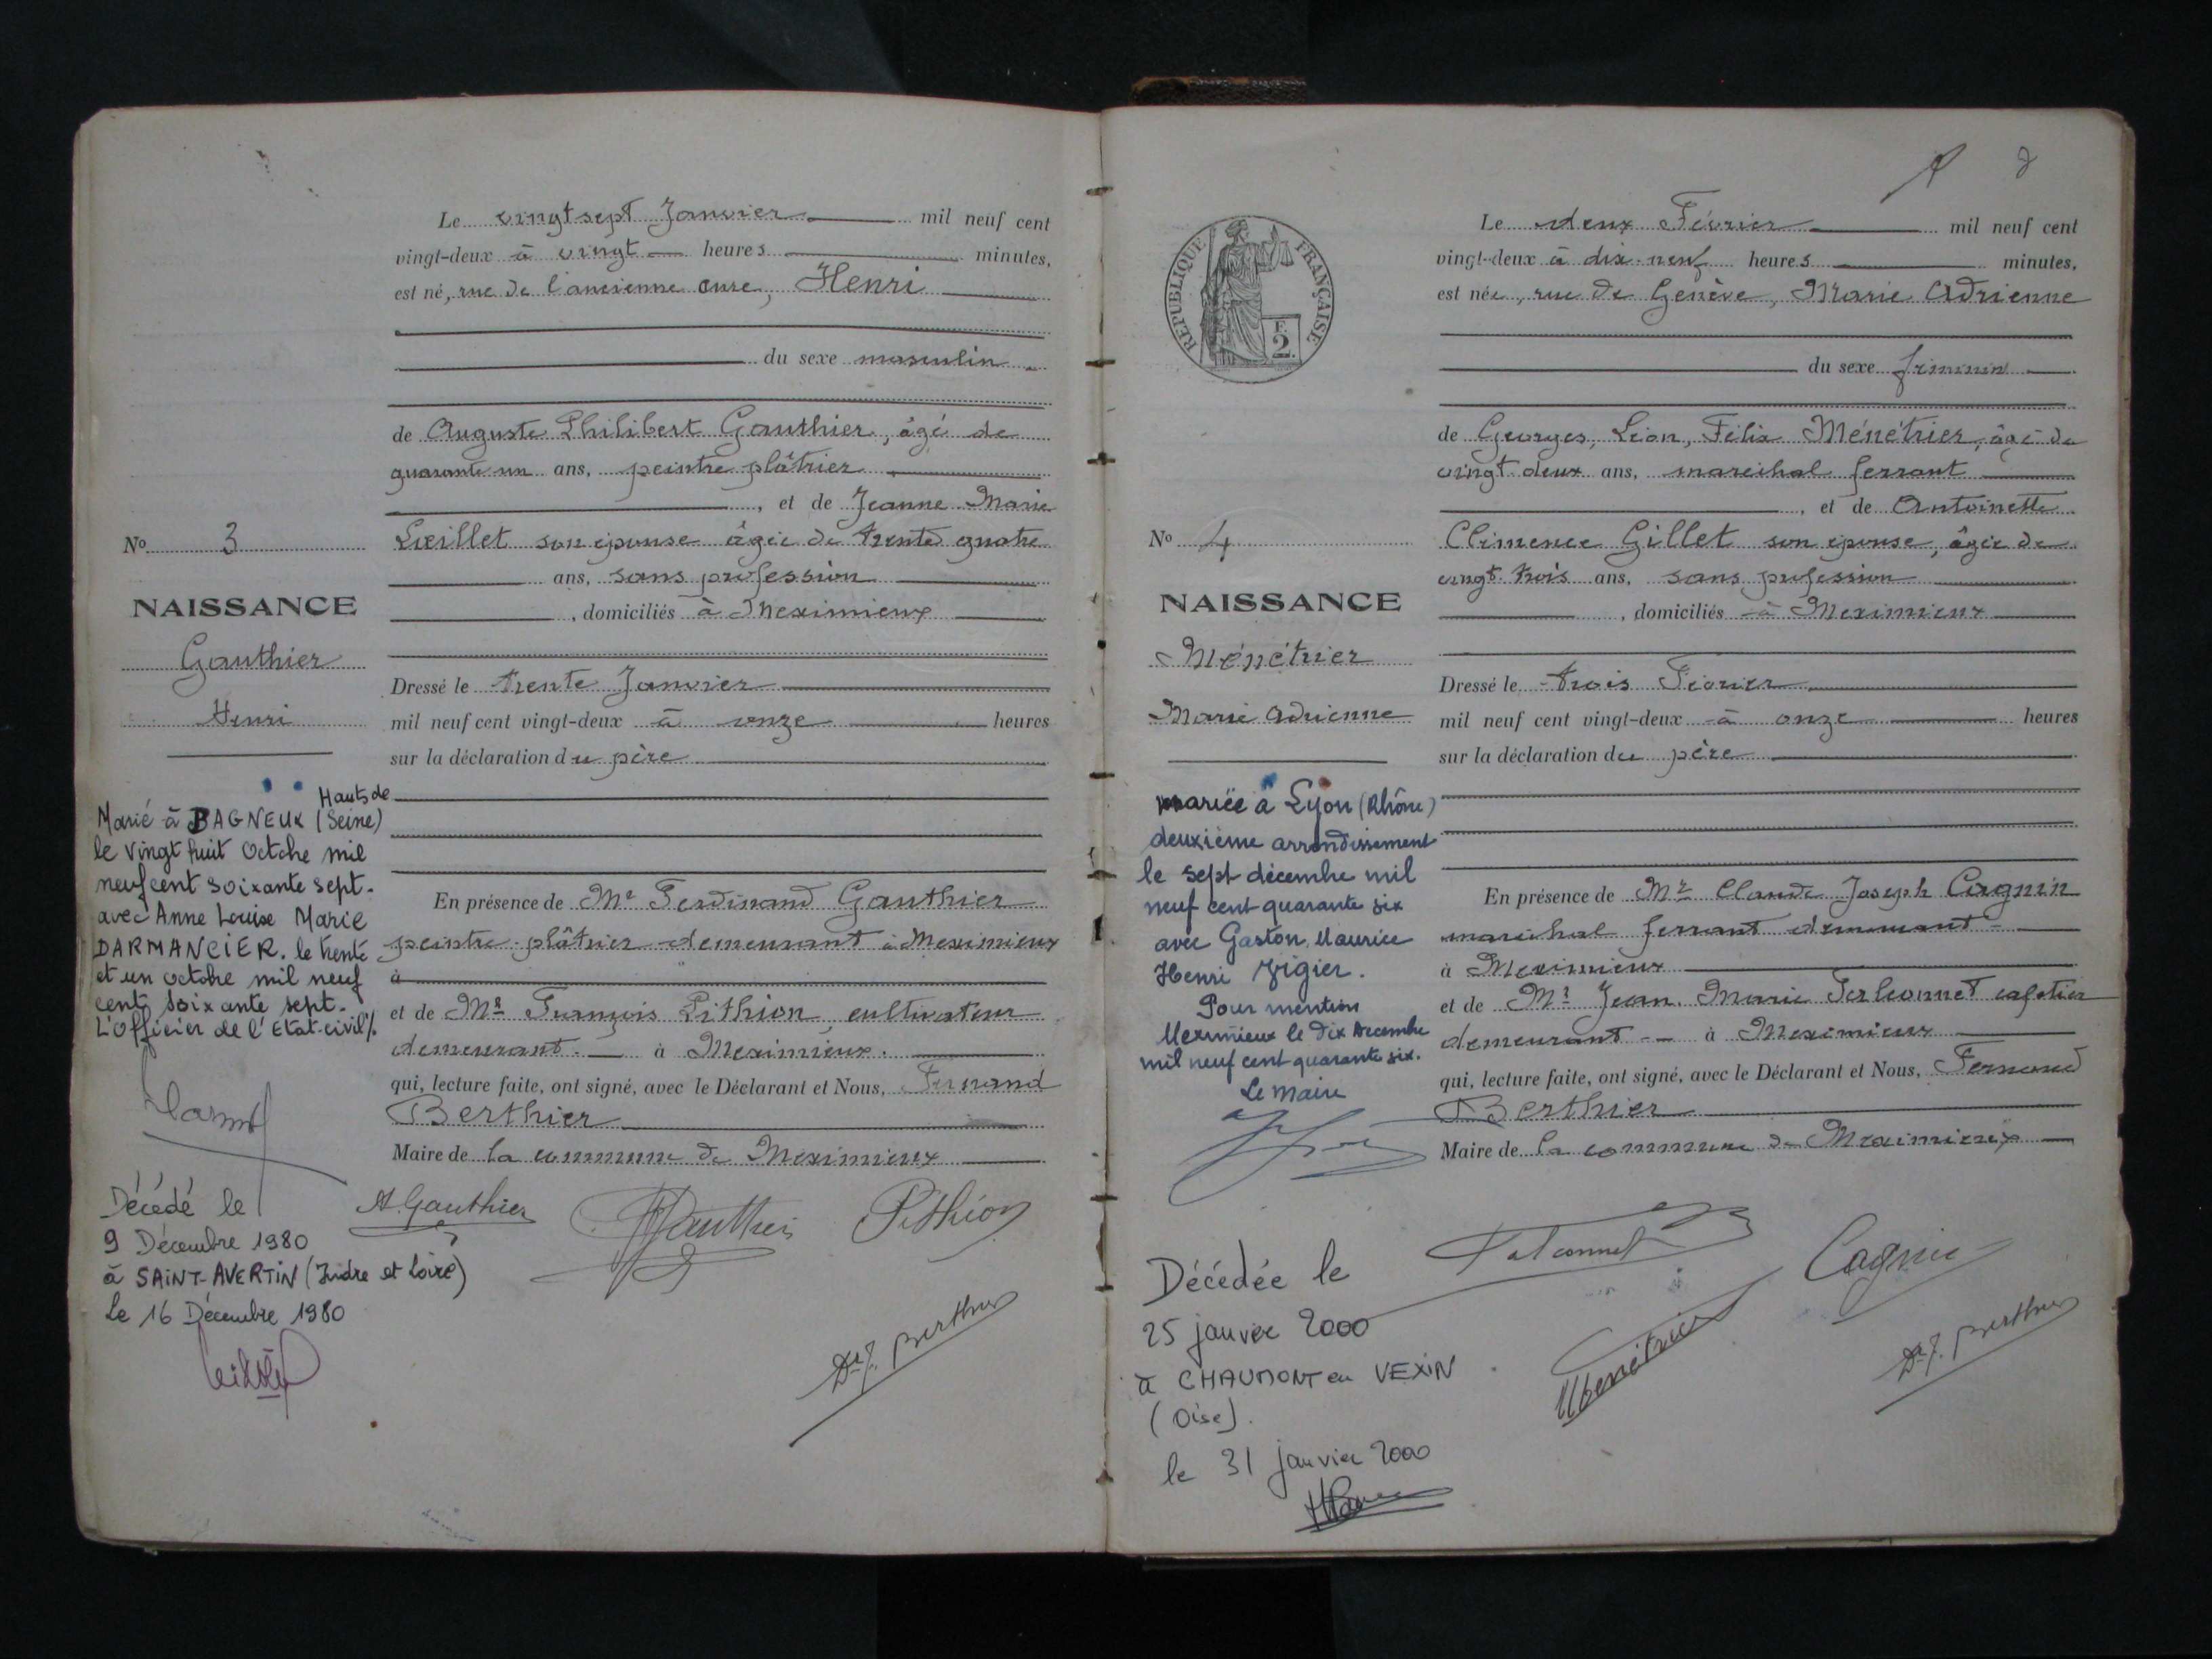 Le vingt sept Janvier mil neuf cent
vingt-deux à vingt heures minutes,
est né, rue de l'ancienne cure, Henri
du sexe masculin
de Auguste Philibert Gauthier, âgé de
quarante un ans, peintre plâtrier
, et de Jeanne Marie
Lieillet son épouse âgée de trente quatre
ans, sans profession
, domiciliés à Meximieux
Dressé le trente Janvier
mil neuf cent vingt-deux à onze heures
sur la déclaration du père
En présence de Mr Ferdinand Gauthier
peintre plâtrier demeurant à Meximieux
à
et de Mr François Pithion, cultivateur
demeurant à Meximieux.
qui, lecture faite, ont signé, avec le Déclarant et Nous, Fernand
Berthier
Maire de la commune de Meximieux
A. Gauthier
Gauthier
Pithion
Dr F. Berthier
No 3
NAISSANCE
Gauthier
Henri
Hauts de
Marié à BAGNEUX (Seine)
le vingt huit Octobre mil
neuf cent soixante sept.
avec Anne Louise Marie
DARMANCIER. le trente
et un octobre mil neuf
cent soixante sept.
L'officier de l'Etat-civil
Décédé le
9 Décembre 1980
à SAINT-AVERTIN (Indre et Loire)
Le 16 Décembre 1980
2
RÉPUBLIQUE FRANÇAISE
F. 2.
Le deux Février mil neuf cent
vingt-deux à dix-neuf heures minutes,
est née, rue de Genève, Marie Adrienne
du sexe féminin
de Georges, Léon, Félix Ménétrier, âgé de
vingt deux ans, maréchal ferrant
, et de Antoinette
Clémence Gillet son épouse, âgée de
vingt trois ans, sans profession
, domiciliés à Meximieux
Dressé le trois Février
mil neuf cent vingt-deux à onze heures
sur la déclaration du père
En présence de Mr Claude Joseph Cagnin
maréchal ferrant demeurant
à Meximieux
et de Mr Jean Marie Falconnet cafetier
demeurant à Meximieux
qui, lecture faite, ont signé, avec le Déclarant et Nous, Fernand
Berthier
Maire de la commune de Meximieux
Falconnet
Cagnin
Ménétrier
Dr F. Berthier
No 4
NAISSANCE
Ménétrier
Marie Adrienne
mariée à Lyon (Rhône)
deuxième arrondissement
le sept décembre mil
neuf cent quarante six
avec Gaston, Maurice
Henri Vigier.
Pour mention
Meximieux le dix décembre
mil neuf cent quarante six.
Le Maire
Décédée le
25 janvier 2000
à CHAUMONT en VEXIN
(Oise).
le 31 janvier 2000